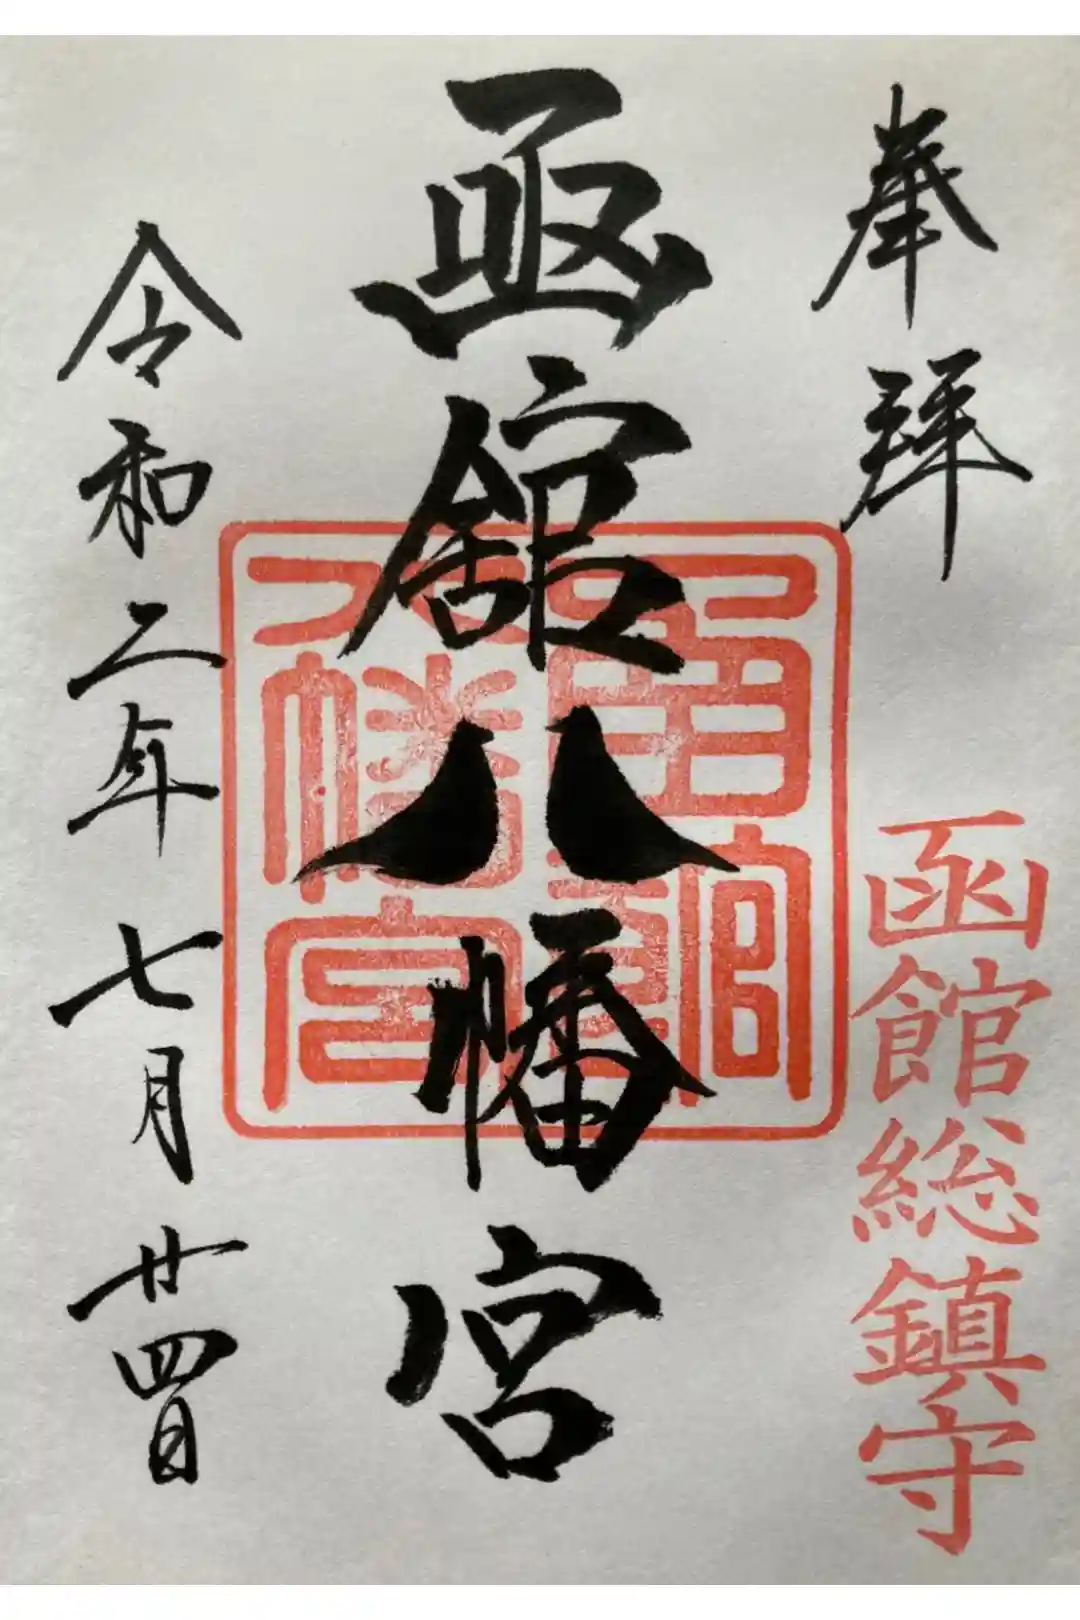 奉拝
函館総鎮守
函館八幡宮
令和二年七月廿四日